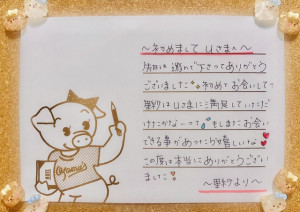 〜初めまして Uさまへ〜
先日は選んで下さってありがとう
ございました 初めてお会いして
里紗はUさまに満足していただ
けたかな〜って もしまたお会い
できる事があったら嬉しいな
この度は本当にありがとうござい
ました
〜里紗より〜